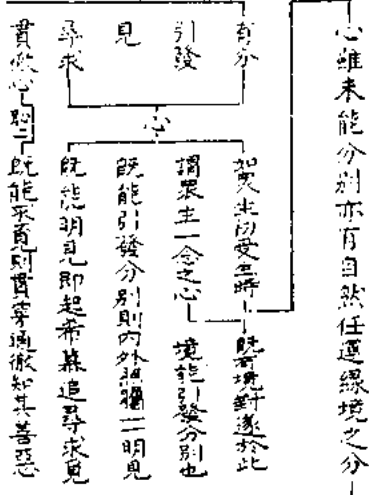 心雖未能分別亦有自然任運緣境之分
有分
引發
見
尋求
心
如眾生初受生時
既有境對遂於此
謂眾生一念之心
境能引發分別也
既能引發分別則內外照矚一一明見
既能明見即起希慕追尋求覓
貫徹心
既能求覓則貫穿通徹知其善惡